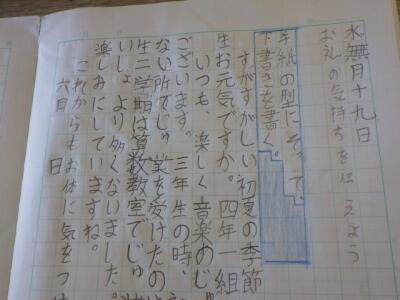 水無月十九日
お礼の気持ちを伝えよう
手紙の型にそって、
下書きを書く。
すがすがしい初夏の季節
生お元気ですか。四年一組
いつも、楽しく音楽のじゅ
ございます。三年生の時、
ない所でじゅ業を受けたのは
生二学期は算数教室でじゅ
いしょより多くないました。
楽しみにしていますね。
これからもお体に気をつけ
六日 日